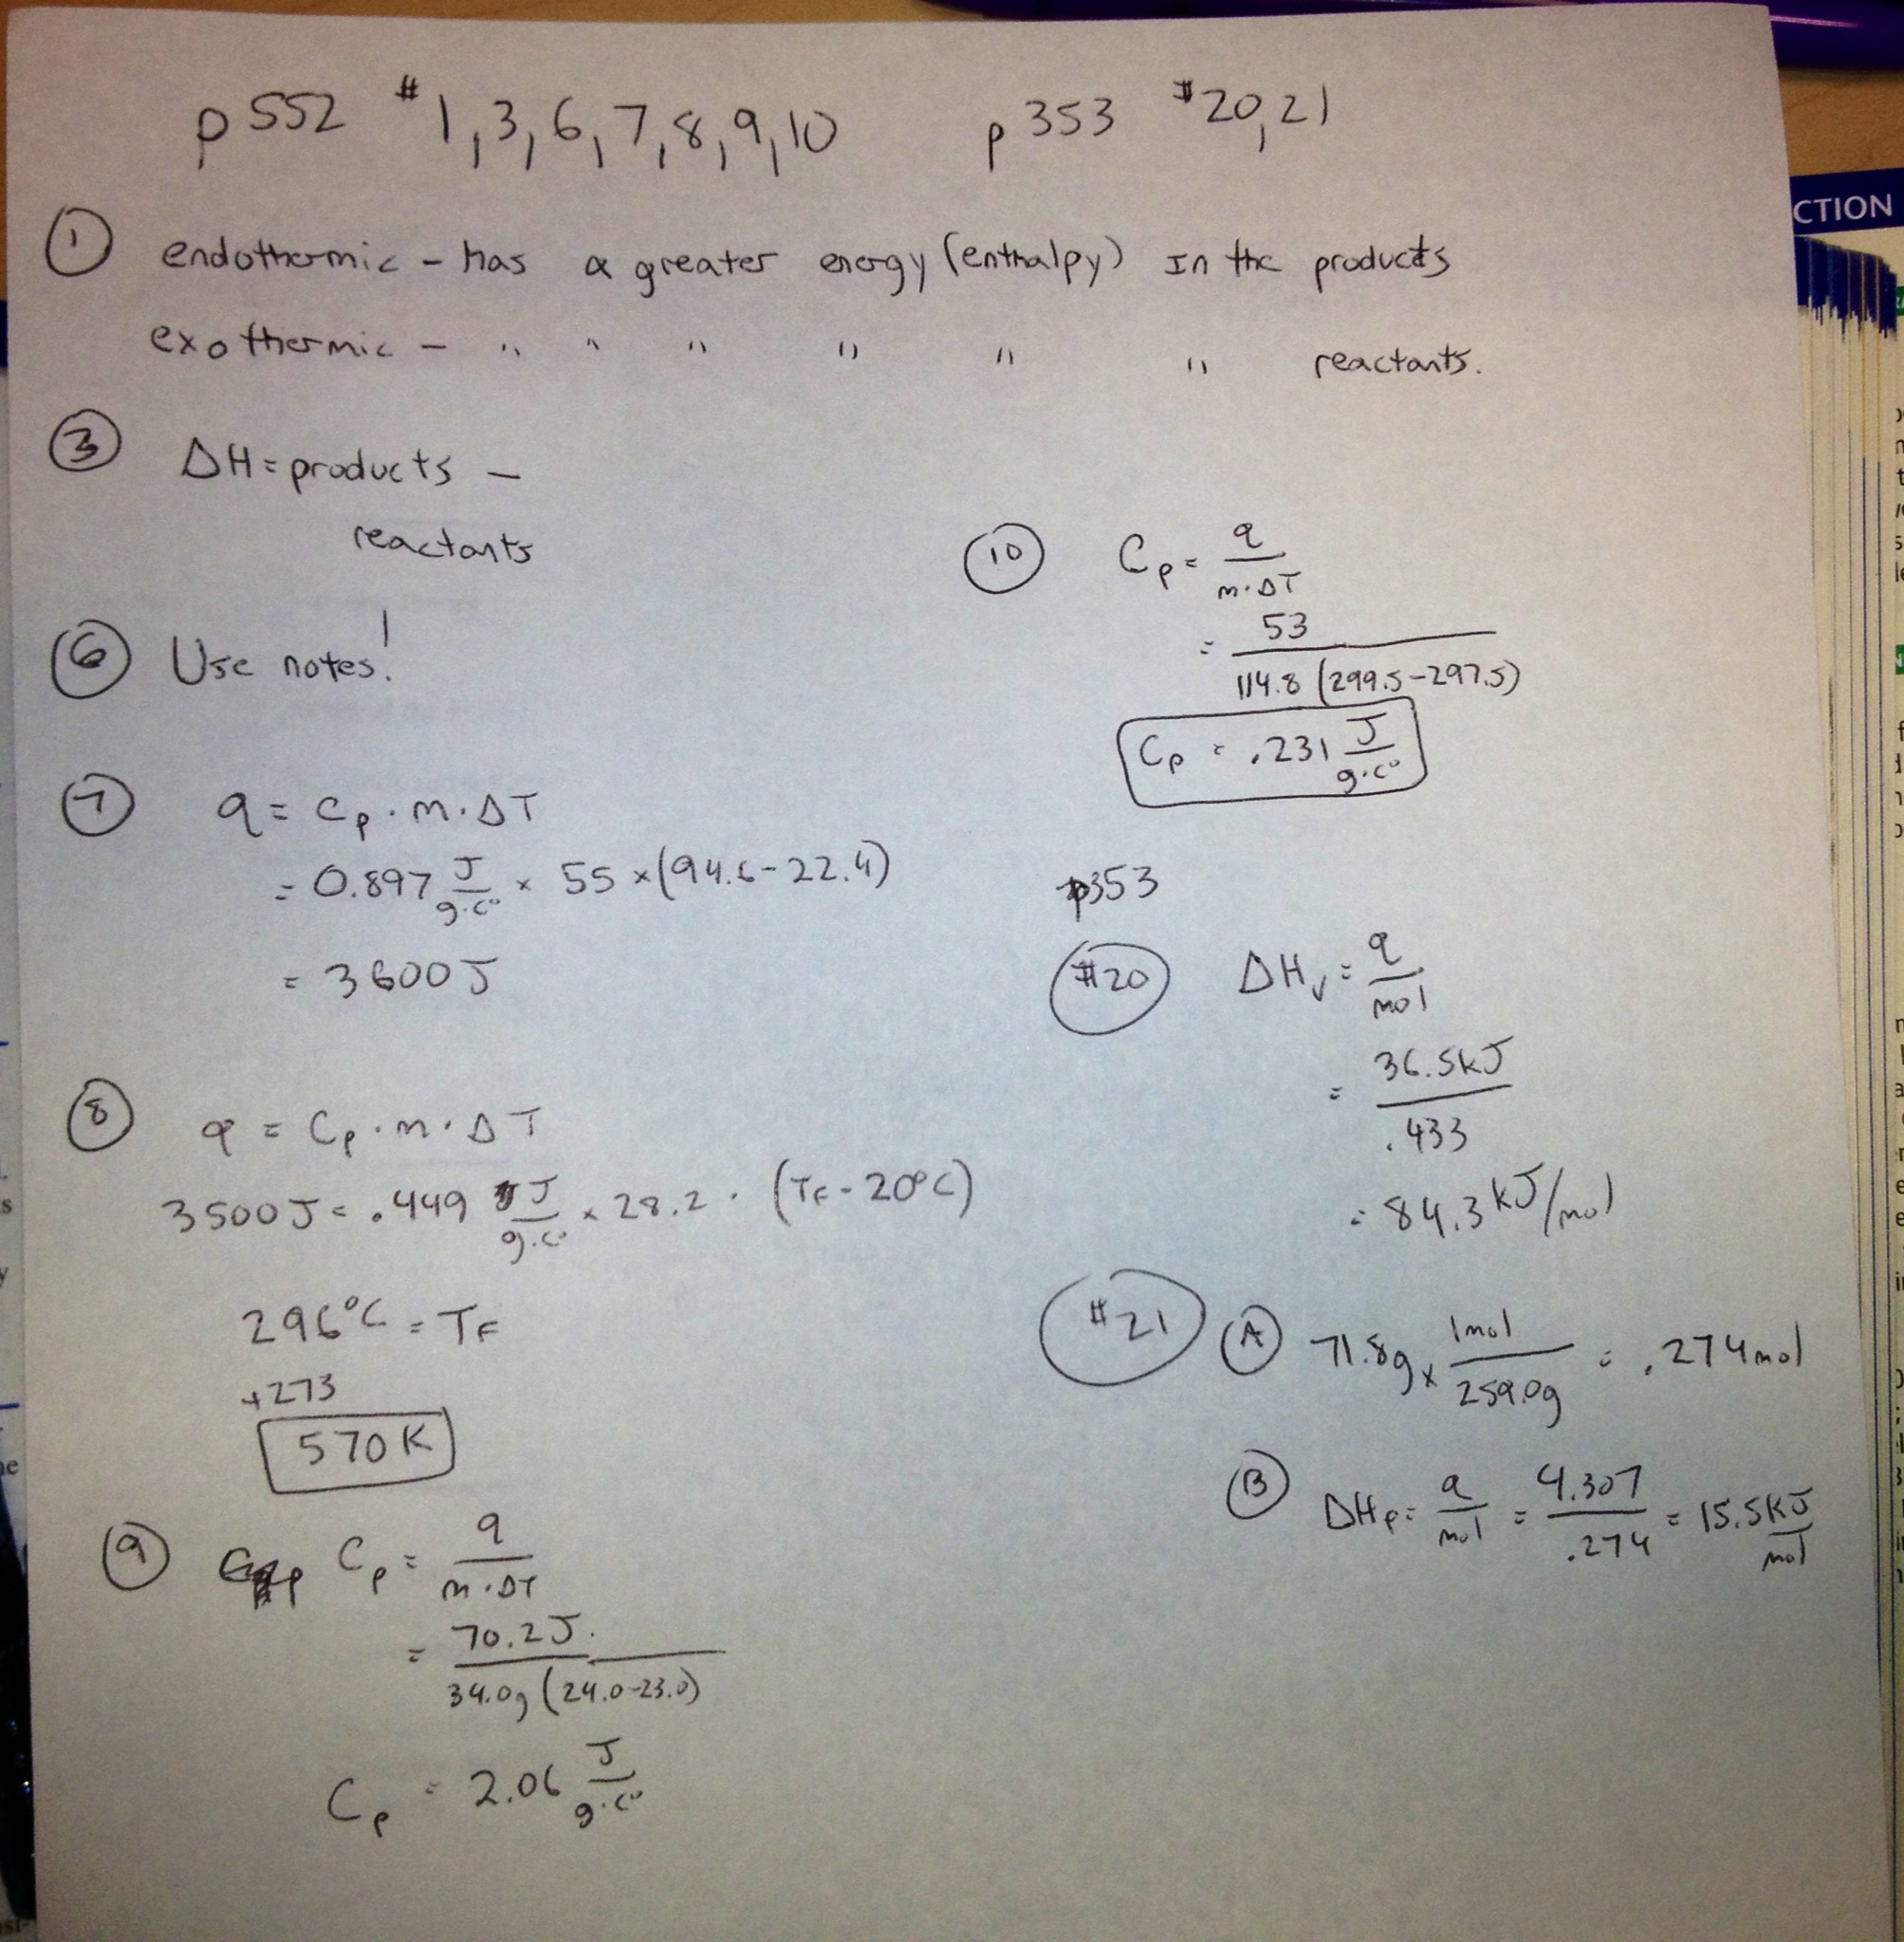 p 552 # 1, 3, 6, 7, 8, 9, 10 p 353 # 20, 21
① endothermic - has a greater energy (enthalpy) In the products
exothermic - " " " " " " reactants.
③ ΔH = products -
reactants
⑥ Use notes!
⑦ q = Cp · m · ΔT
= 0.897 J/g·C° × 55 × (94.6 - 22.4)
= 3600 J
⑧ q = Cp · m · ΔT
3500 J = .449 J/g·C° × 28.2 · (TF - 20°C)
296°C = TF
+273
570 K
⑨ Cp = q/m·ΔT
= 70.2 J/34.0g (24.0-23.0)
Cp = 2.06 J/g·C°
⑩ Cp = q/m·ΔT
= 53/114.8 (299.5-297.5)
Cp = .231 J/g·C°
p353
#20 ΔHv = q/mol
= 36.5kJ/.433
= 84.3 kJ/mol
#21 Ⓐ 71.8g × 1mol/259.0g = .274mol
Ⓑ ΔHF = q/mol = 4.307/.274 = 15.5 kJ/mol
CTION